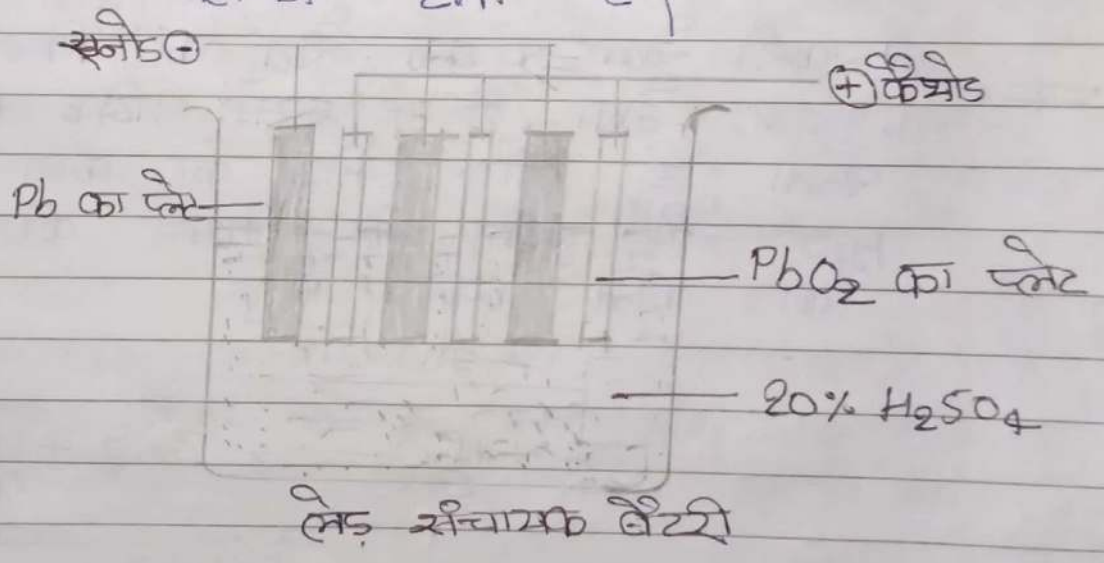 एनोड ⊖
⊕ कैथोड
Pb का प्लेट
PbO₂ का प्लेट
20% H₂SO₄
लेड संचायक बैटरी